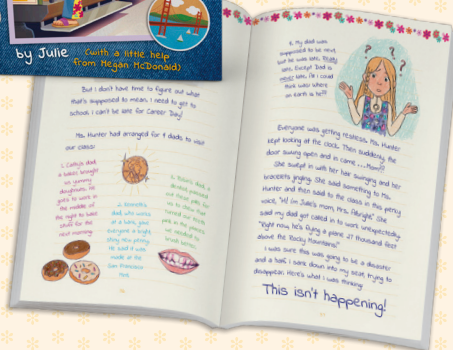 by Julie (with a little help
from Megan McDonald)
But I don't have time to figure out what
that's supposed to mean. I need to get to
school. I can't be late for Career Day!
Ms. Hunter had arranged for 4 dads to visit
our class:
1. Cathy's dad,
a baker, brought
us yummy
doughnuts. He
goes to work in
the middle of
the night to bake
stuff for the
next morning.
2. 
dad, who works
at a bank, gave
everyone a bright,
shiny new penny.
He said it was
made at the
San Francisco
Mint.
3. dad, a
dentist, passed
out these pills for
us to chew that
turned our teeth
pink in the places
we needed to
brush better.
4. My dad was
supposed to be next,
but he was late. Really
late. Except Dad is
never late. All I could
think was where
on earth is he?!
Everyone was getting restless. Ms. Hunter
kept looking at the clock. Then suddenly the
door swung open and in came ...Mom?!
She swept in with her hair swinging and her
bracelets jingling. She said something to Ms.
Hunter and then said to the class in this perky
voice, "Hi! I'm Julie's mom, Mrs. Albright." She
said my dad got called in to work unexpectedly.
"Right now, he's flying a plane 27 thousand feet
above the Rocky Mountains!"
I was sure this was going to be a disaster
and a half. I sank down into my seat trying to
disappear. Here's what I was thinking:
This isn't happening!